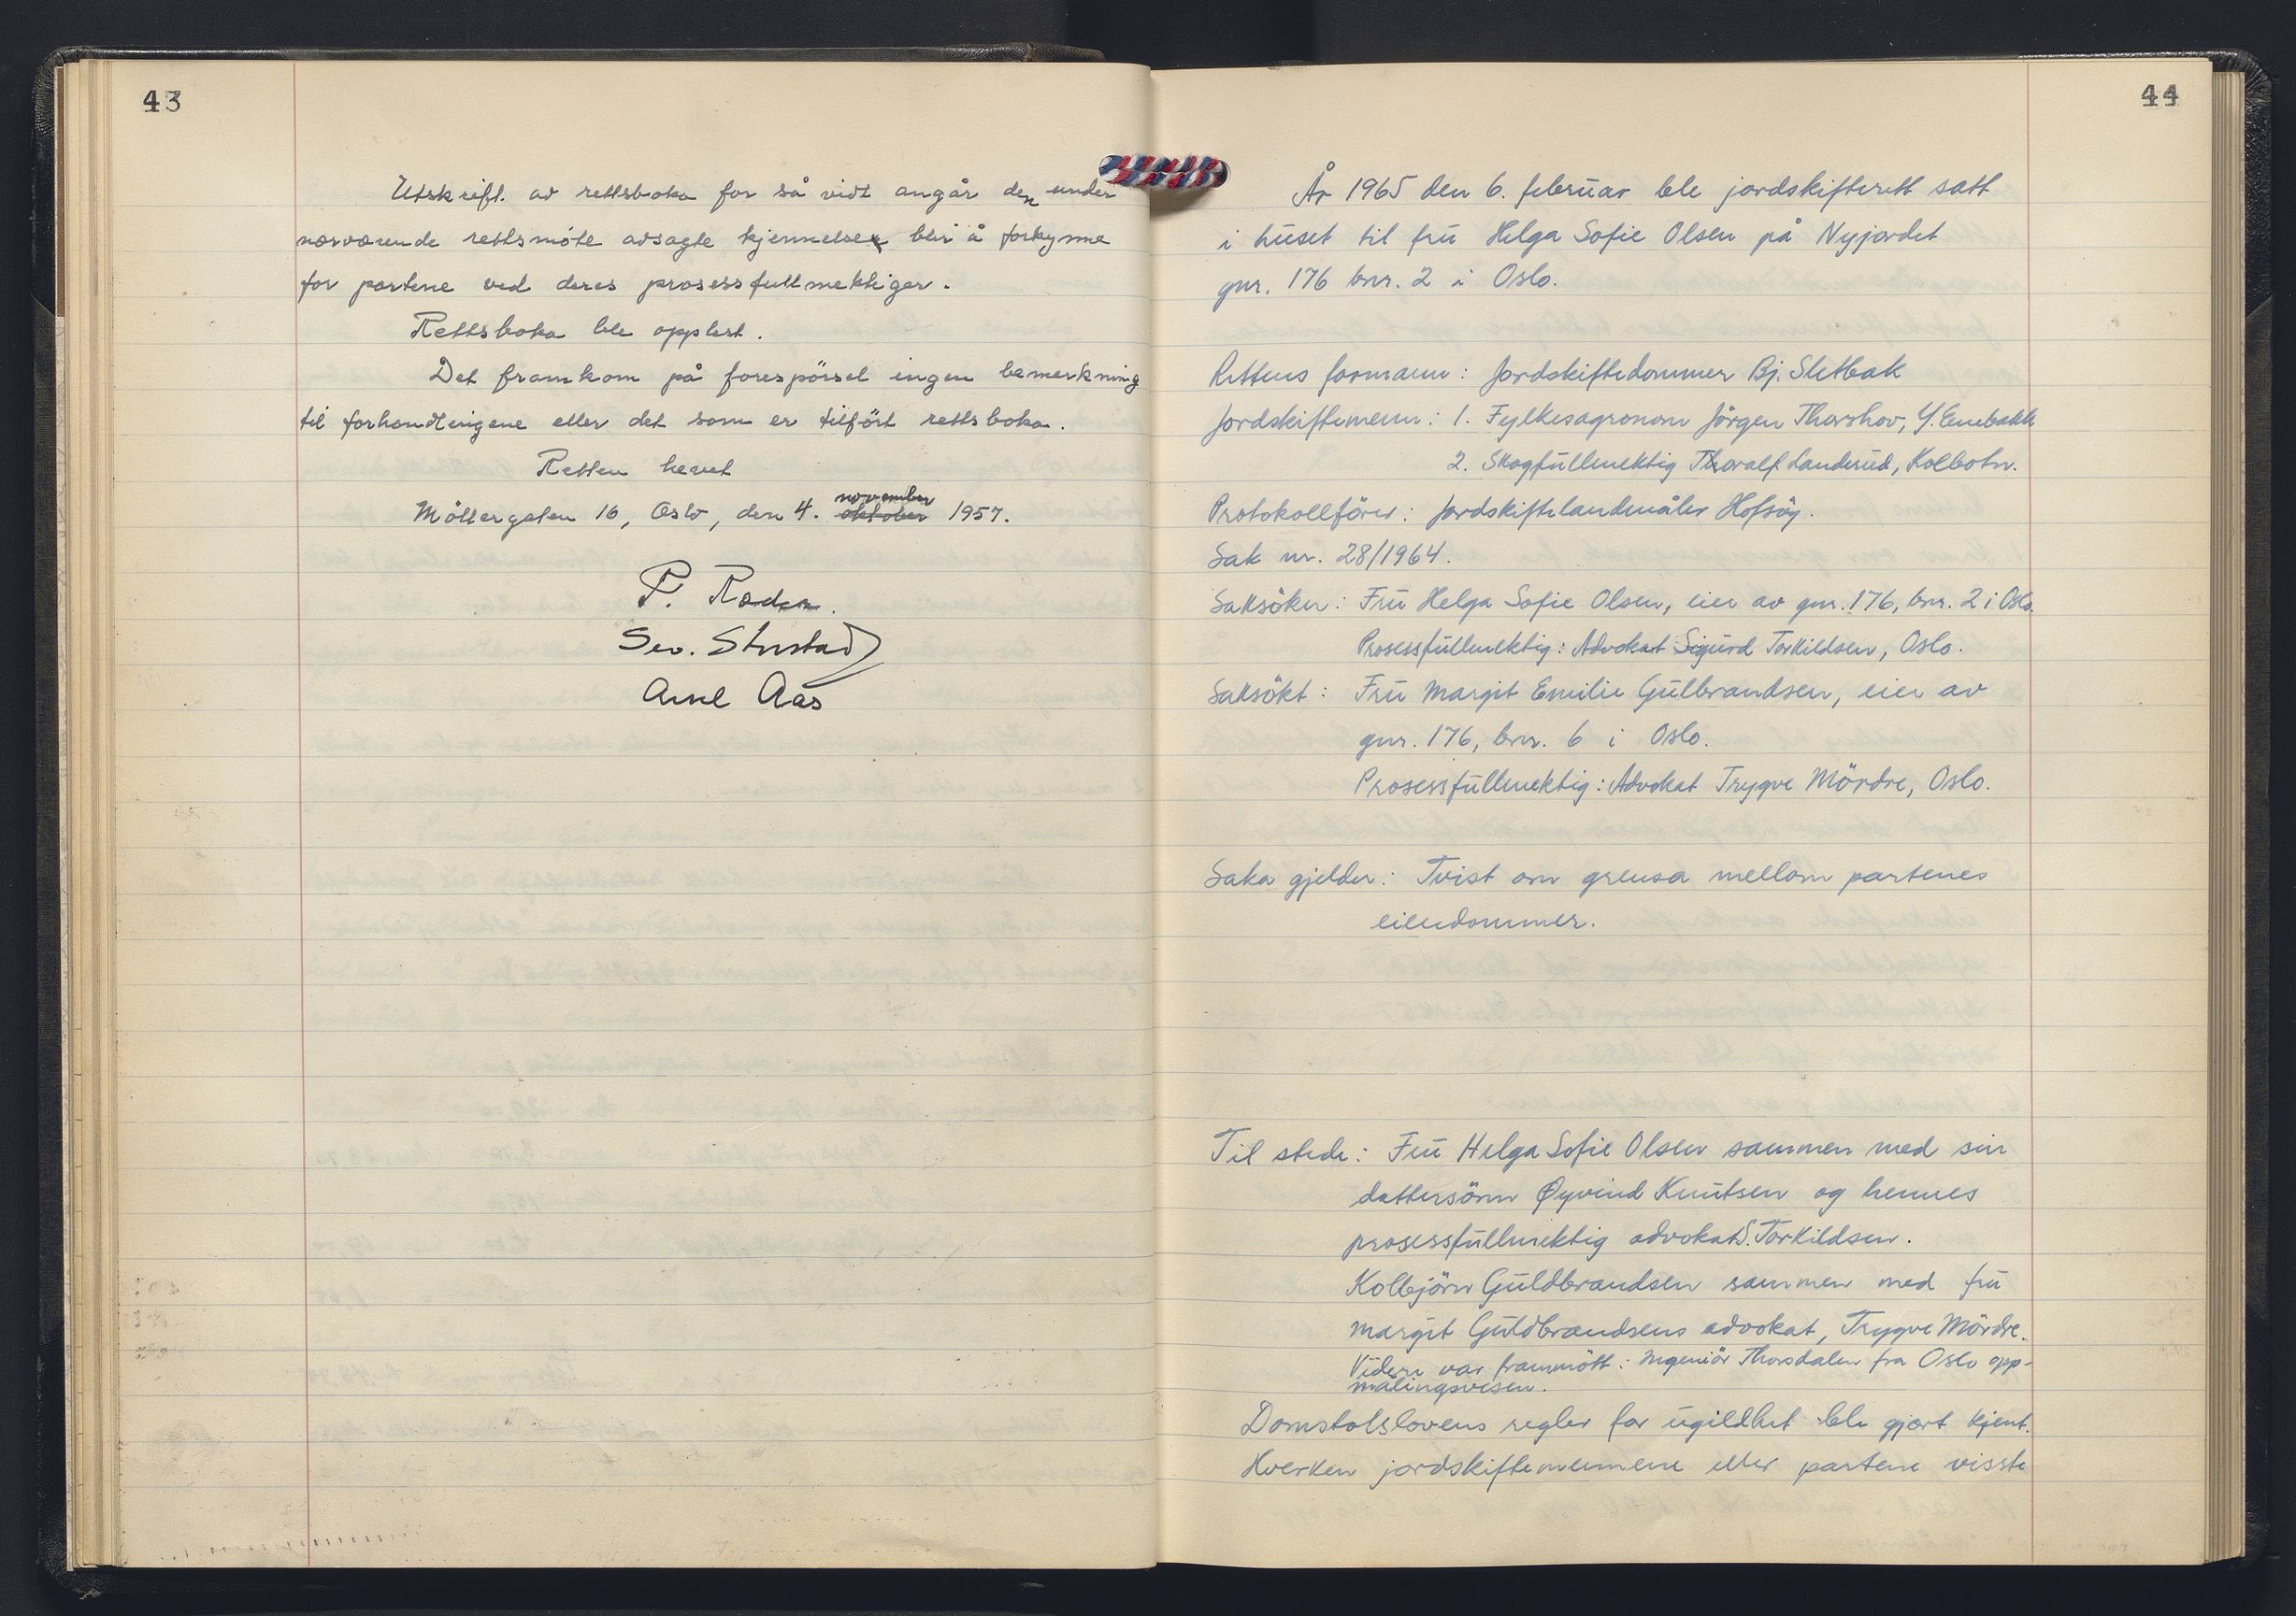 43
Utskrift av rettsboka for så vidt angår den under
nærværende rettsmöte avsagte kjennelse blir å forkynne
for partene ved deres prosessfullmektiger.
Rettsboka ble opplest.
Det framkom på forespörsel ingen bemerkning
til forhandlingene eller det som er tilfört rettsboka.
Retten hevet
november
Möllergaten 16, Oslo, den 4. oktober 1957.
P. Roden.
Sev. Strustad
Arne Aas
44
År 1965 den 6. februar ble jordskifterett satt
i huset til fru Helga Sofie Olsen på Nyjordet
gnr. 176 bnr. 2 i Oslo.
Rettens formann: Jordskiftedommer Bj. Sletbak
Jordskiftemenn: 1. Fylkesagronom Jörgen Thorshov, Y. Enebakk
2. Skogfullmektig Thoralf Landerud, Kolbotn.
Protokollförer: Jordskiftelandmåler Hofsöy.
Sak nr. 28/1964.
Saksöker: Fru Helga Sofie Olsen, eier av gnr. 176, bnr. 2 i Oslo.
Prosessfullmektig: Advokat Sigurd Torkildsen, Oslo.
Saksökt: Fru Margit Emilie Gulbrandsen, eier av
gnr. 176, bnr. 6 i Oslo.
Prosessfullmektig: Advokat Trygve Mördre, Oslo.
Saka gjelder: Tvist om grensa mellom partenes
eiendommer.
Til stede: Fru Helga Sofie Olsen sammen med sin
dattersönn Øyvind Knutsen og hennes
prosessfullmektig advokat S. Torkildsen.
Kolbjörn Guldbrandsen sammen med fru
Margit Guldbrandsens advokat, Trygve Mördre.
Videre var frammött: Ingeniör Thorsdalen fra Oslo opp-
målingsvesen.
Domstolslovens regler for ugildhet ble gjort kjent.
Hverken jordskiftemennene eller partene visste